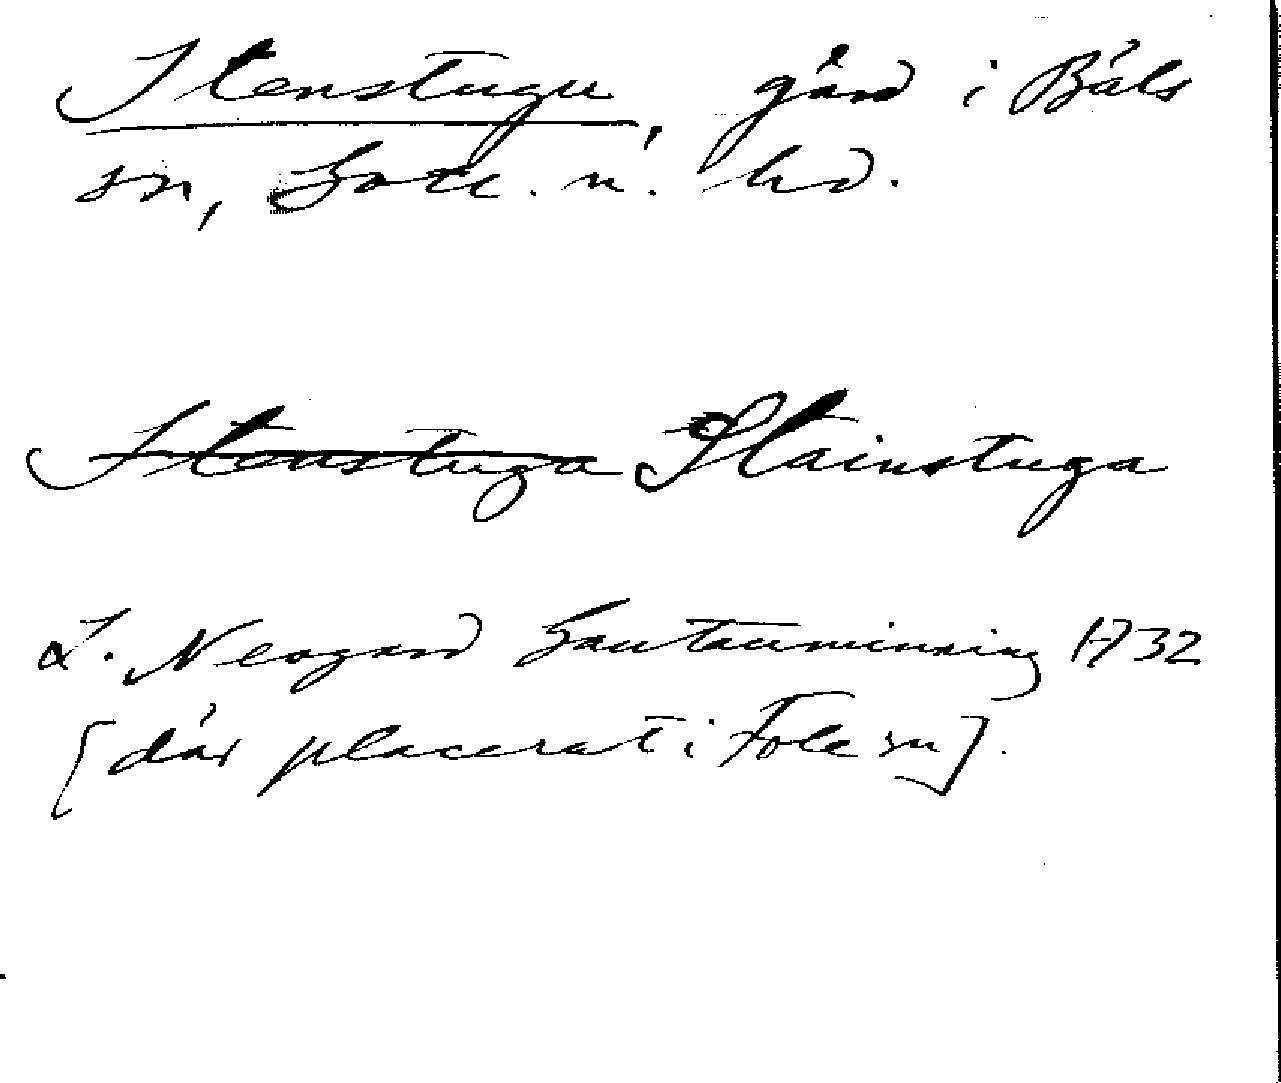 Stenstugu, gård i Båls
sn, Gotl. n. hd.
Stenstuga Stainstuga
L. Neogard Gautauminning 1732
[där placerat i Fole sn].